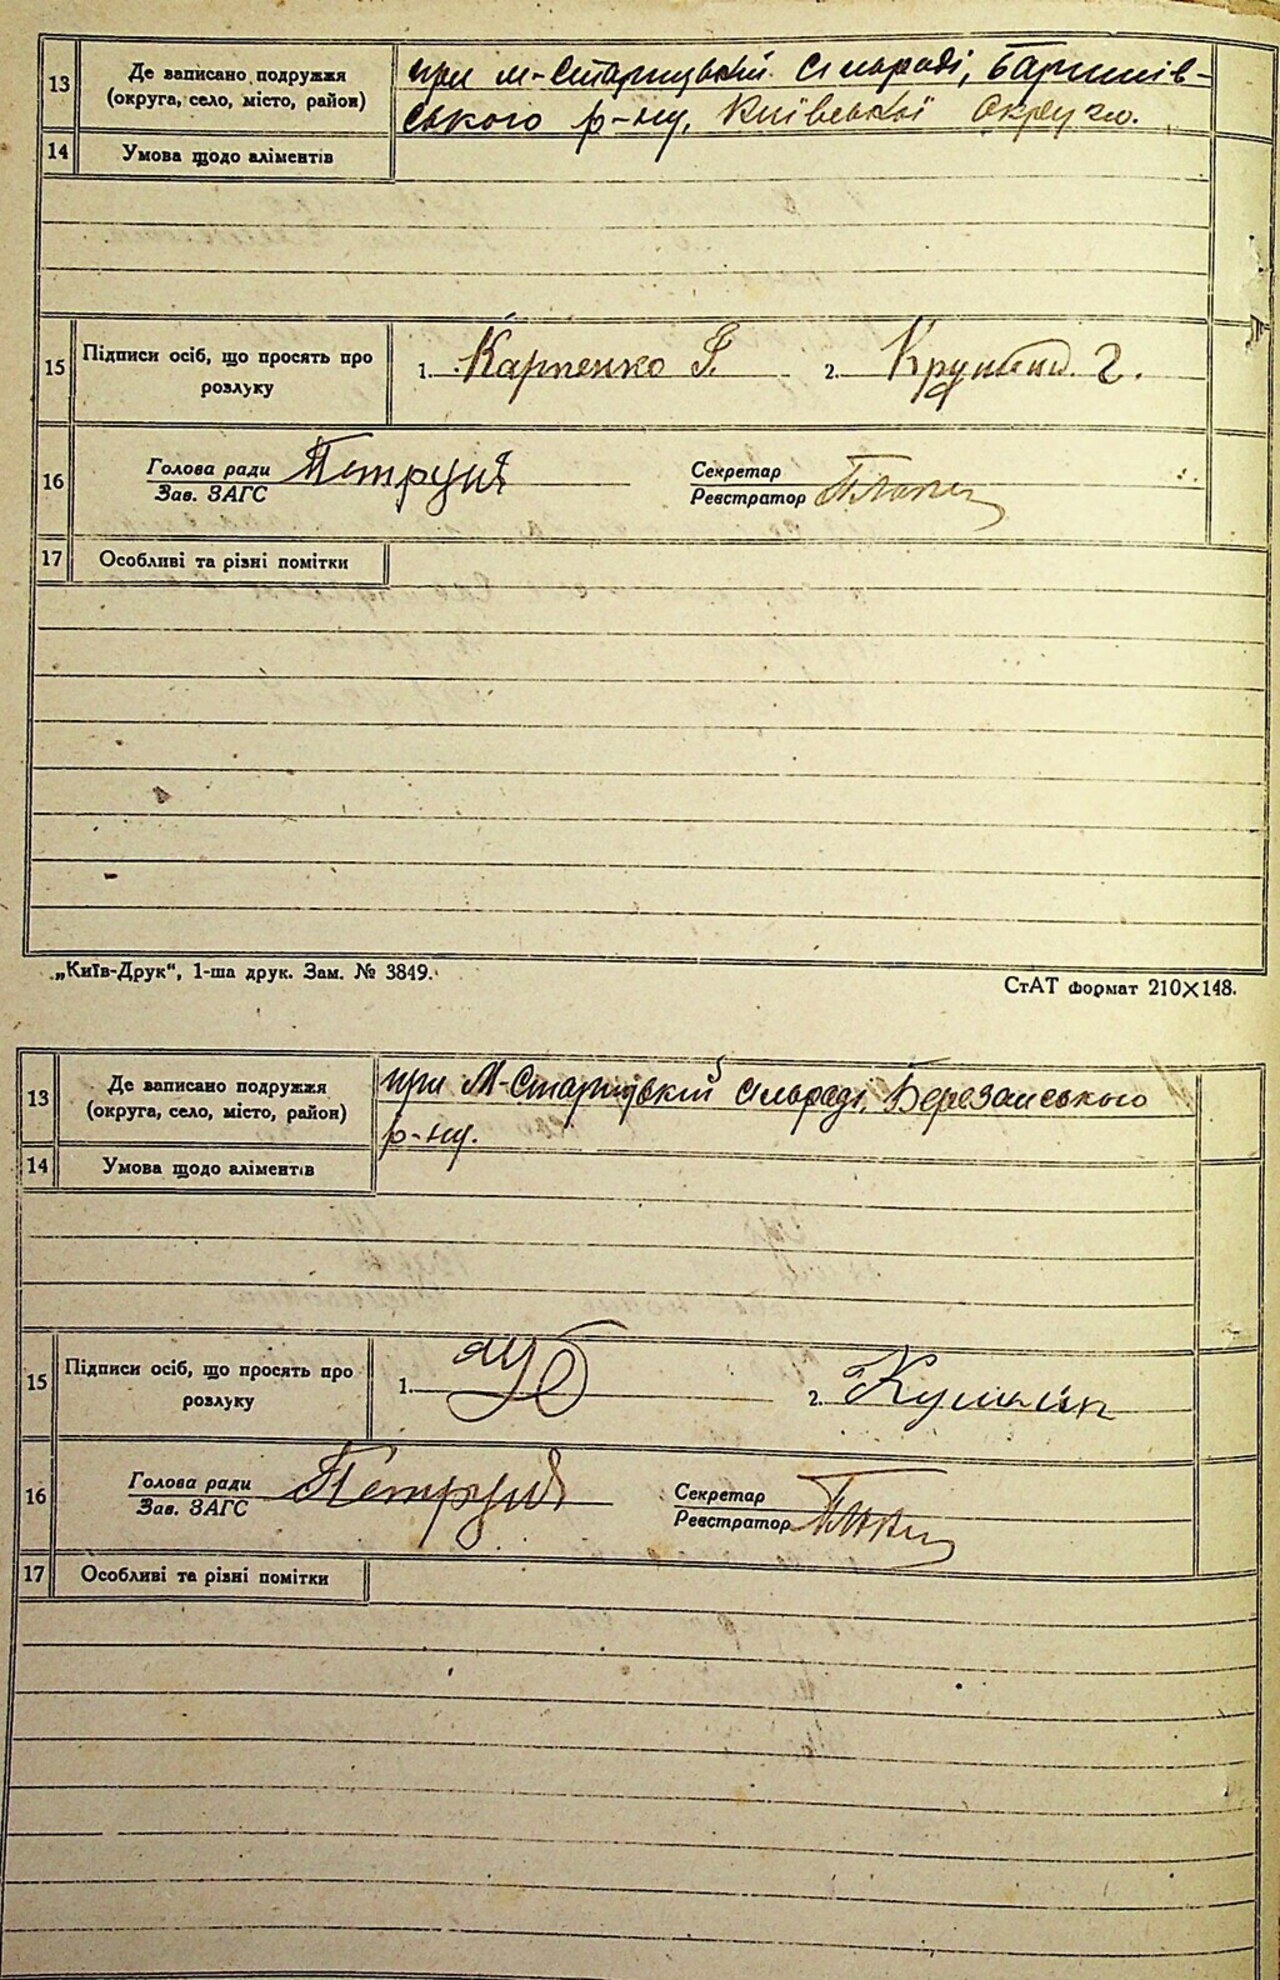 13
Де записано подружжя
(округа, село, місто, район)
при М-Старицькій сільраді, Баришів-
ського р-ну, Київської Округи.
14
Умова щодо аліментів
15
Підписи осіб, що просять про
розлуку
1. Карпенко Г.
2.
16
Голова ради
Зав. ЗАГС
Секретар
Реєстратор
17
Особливі та різні помітки
„Київ-Друк“, 1-ша друк. Зам. № 3849.
СтАТ формат 210×148.
13
Де записано подружжя
(округа, село, місто, район)
при М-Старицькій сільраді, Березанського
р-ну.
14
Умова щодо аліментів
15
Підписи осіб, що просять про
розлуку
1.
2.
16
Голова ради
Зав. ЗАГС
Секретар
Реєстратор
17
Особливі та різні помітки